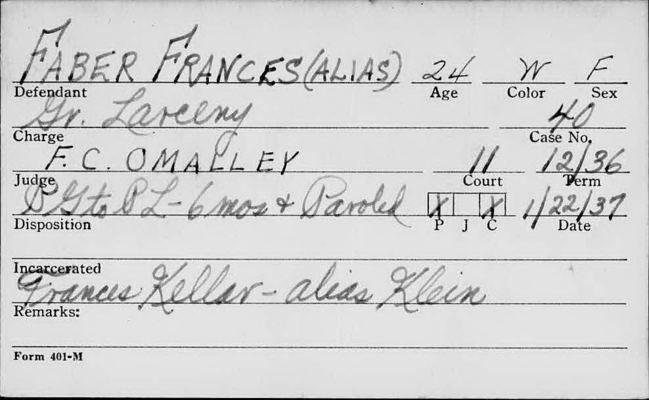 FABER FRANCES (ALIAS) 24 W F
Defendant Age Color Sex
Gr. Larceny 40
Charge Case No.
F. C. OMALLEY 11 12/36
Judge Court Term
PG to PL - 6 mos & Paroled X X 1/22/37
Disposition P J C Date
Incarcerated
Frances Kellar - alias Klein
Remarks:
Form 401-M